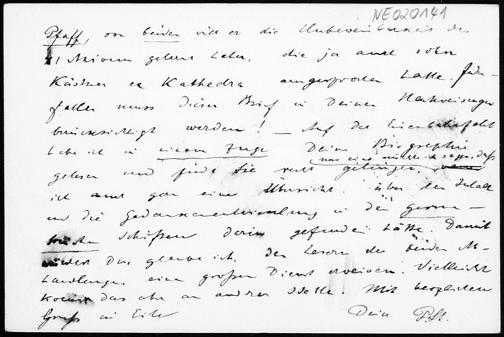 NE020141
Pfaff, von beiden will er die Unbeweisbarkeit des
11. Axioms gelernt haben, die ja auch schon
Kästner ex Kathedra ausgesprochen hatte. Jeden-
falls muss dieser Brief in Deinen Nachweisungen
berücksichtigt werden! — Auf der Eisenbahnfahrt
habe ich in einem Zuge Deine Biographie
gelesen und finde sie recht gelungen,
(nur eins möchte ich sagen, dass
ich gar eine Übersicht über den Inhalt
und die Gedankenentwicklung in den geome-
trischen Schriften darin gefunden hätte. Damit
würdest Du, glaube ich, den Lesern der beiden Ab-
handlungen einen großen Dienst erweisen. Vielleicht
kommt das aber an andrer Stelle! Mit herzlichem
Gruß in Eile Dein P. St.